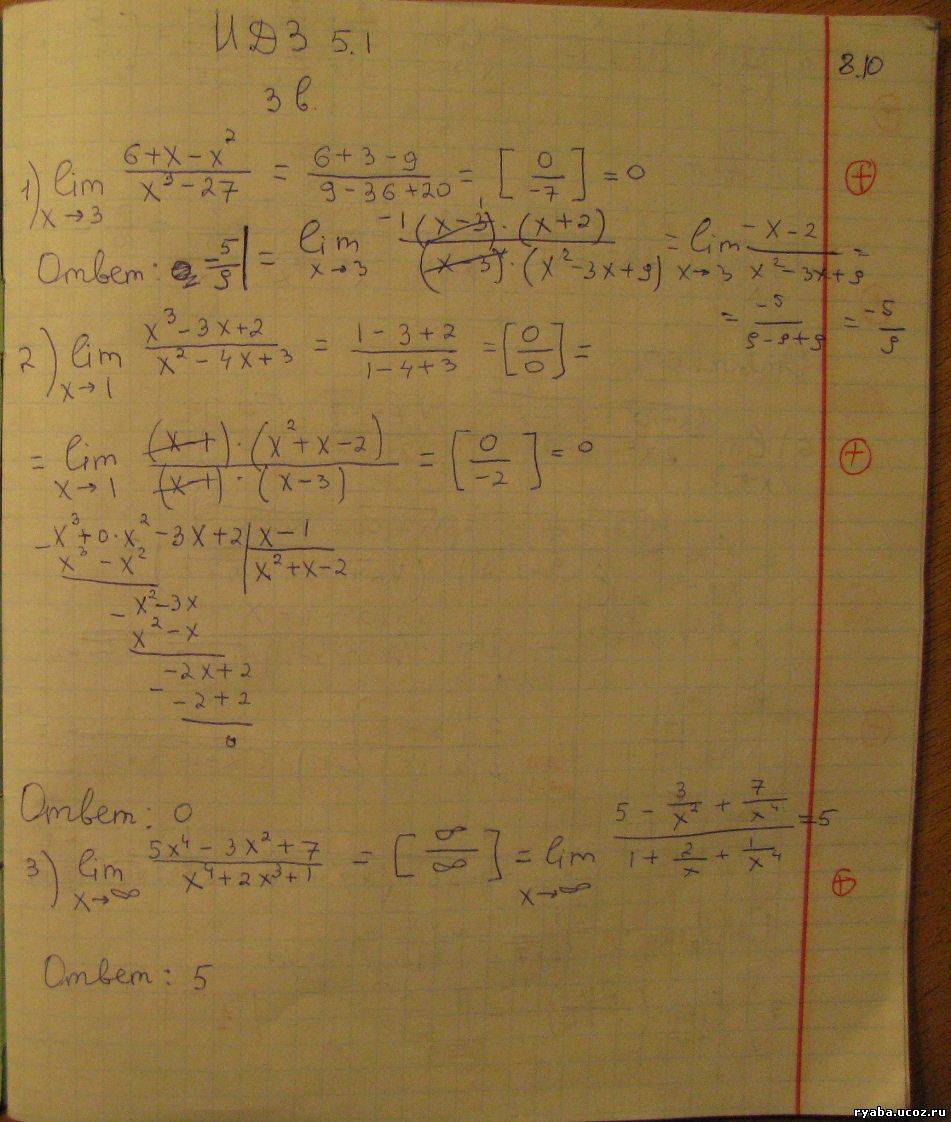 ИДЗ 5.1
8.10
3 в.
1) lim x→3 (6+x-x²)/(x³-27) = (6+3-9)/(9-36+20) = [0/-7] = 0
Ответ: -5/9 | = lim x→3 (-1(x-3)·(x+2))/((x-3)·(x²-3x+9)) = lim x→3 (-x-2)/(x²-3x+9) =
= -5/(9-9+9) = -5/9
2) lim x→1 (x³-3x+2)/(x²-4x+3) = (1-3+2)/(1-4+3) = [0/0] =
= lim x→1 ((x-1)·(x²+x-2))/((x-1)·(x-3)) = [0/-2] = 0
- x³+0·x²-3x+2 | x-1
x³-x² | x²+x-2
- x²-3x
x²-x
- -2x+2
-2+2
0
Ответ: 0
3) lim x→∞ (5x⁴-3x²+7)/(x⁴+2x³+1) = [∞/∞] = lim x→∞ (5 - 3/x² + 7/x⁴)/(1 + 2/x + 1/x⁴) = 5
Ответ: 5
ryaba.ucoz.ru